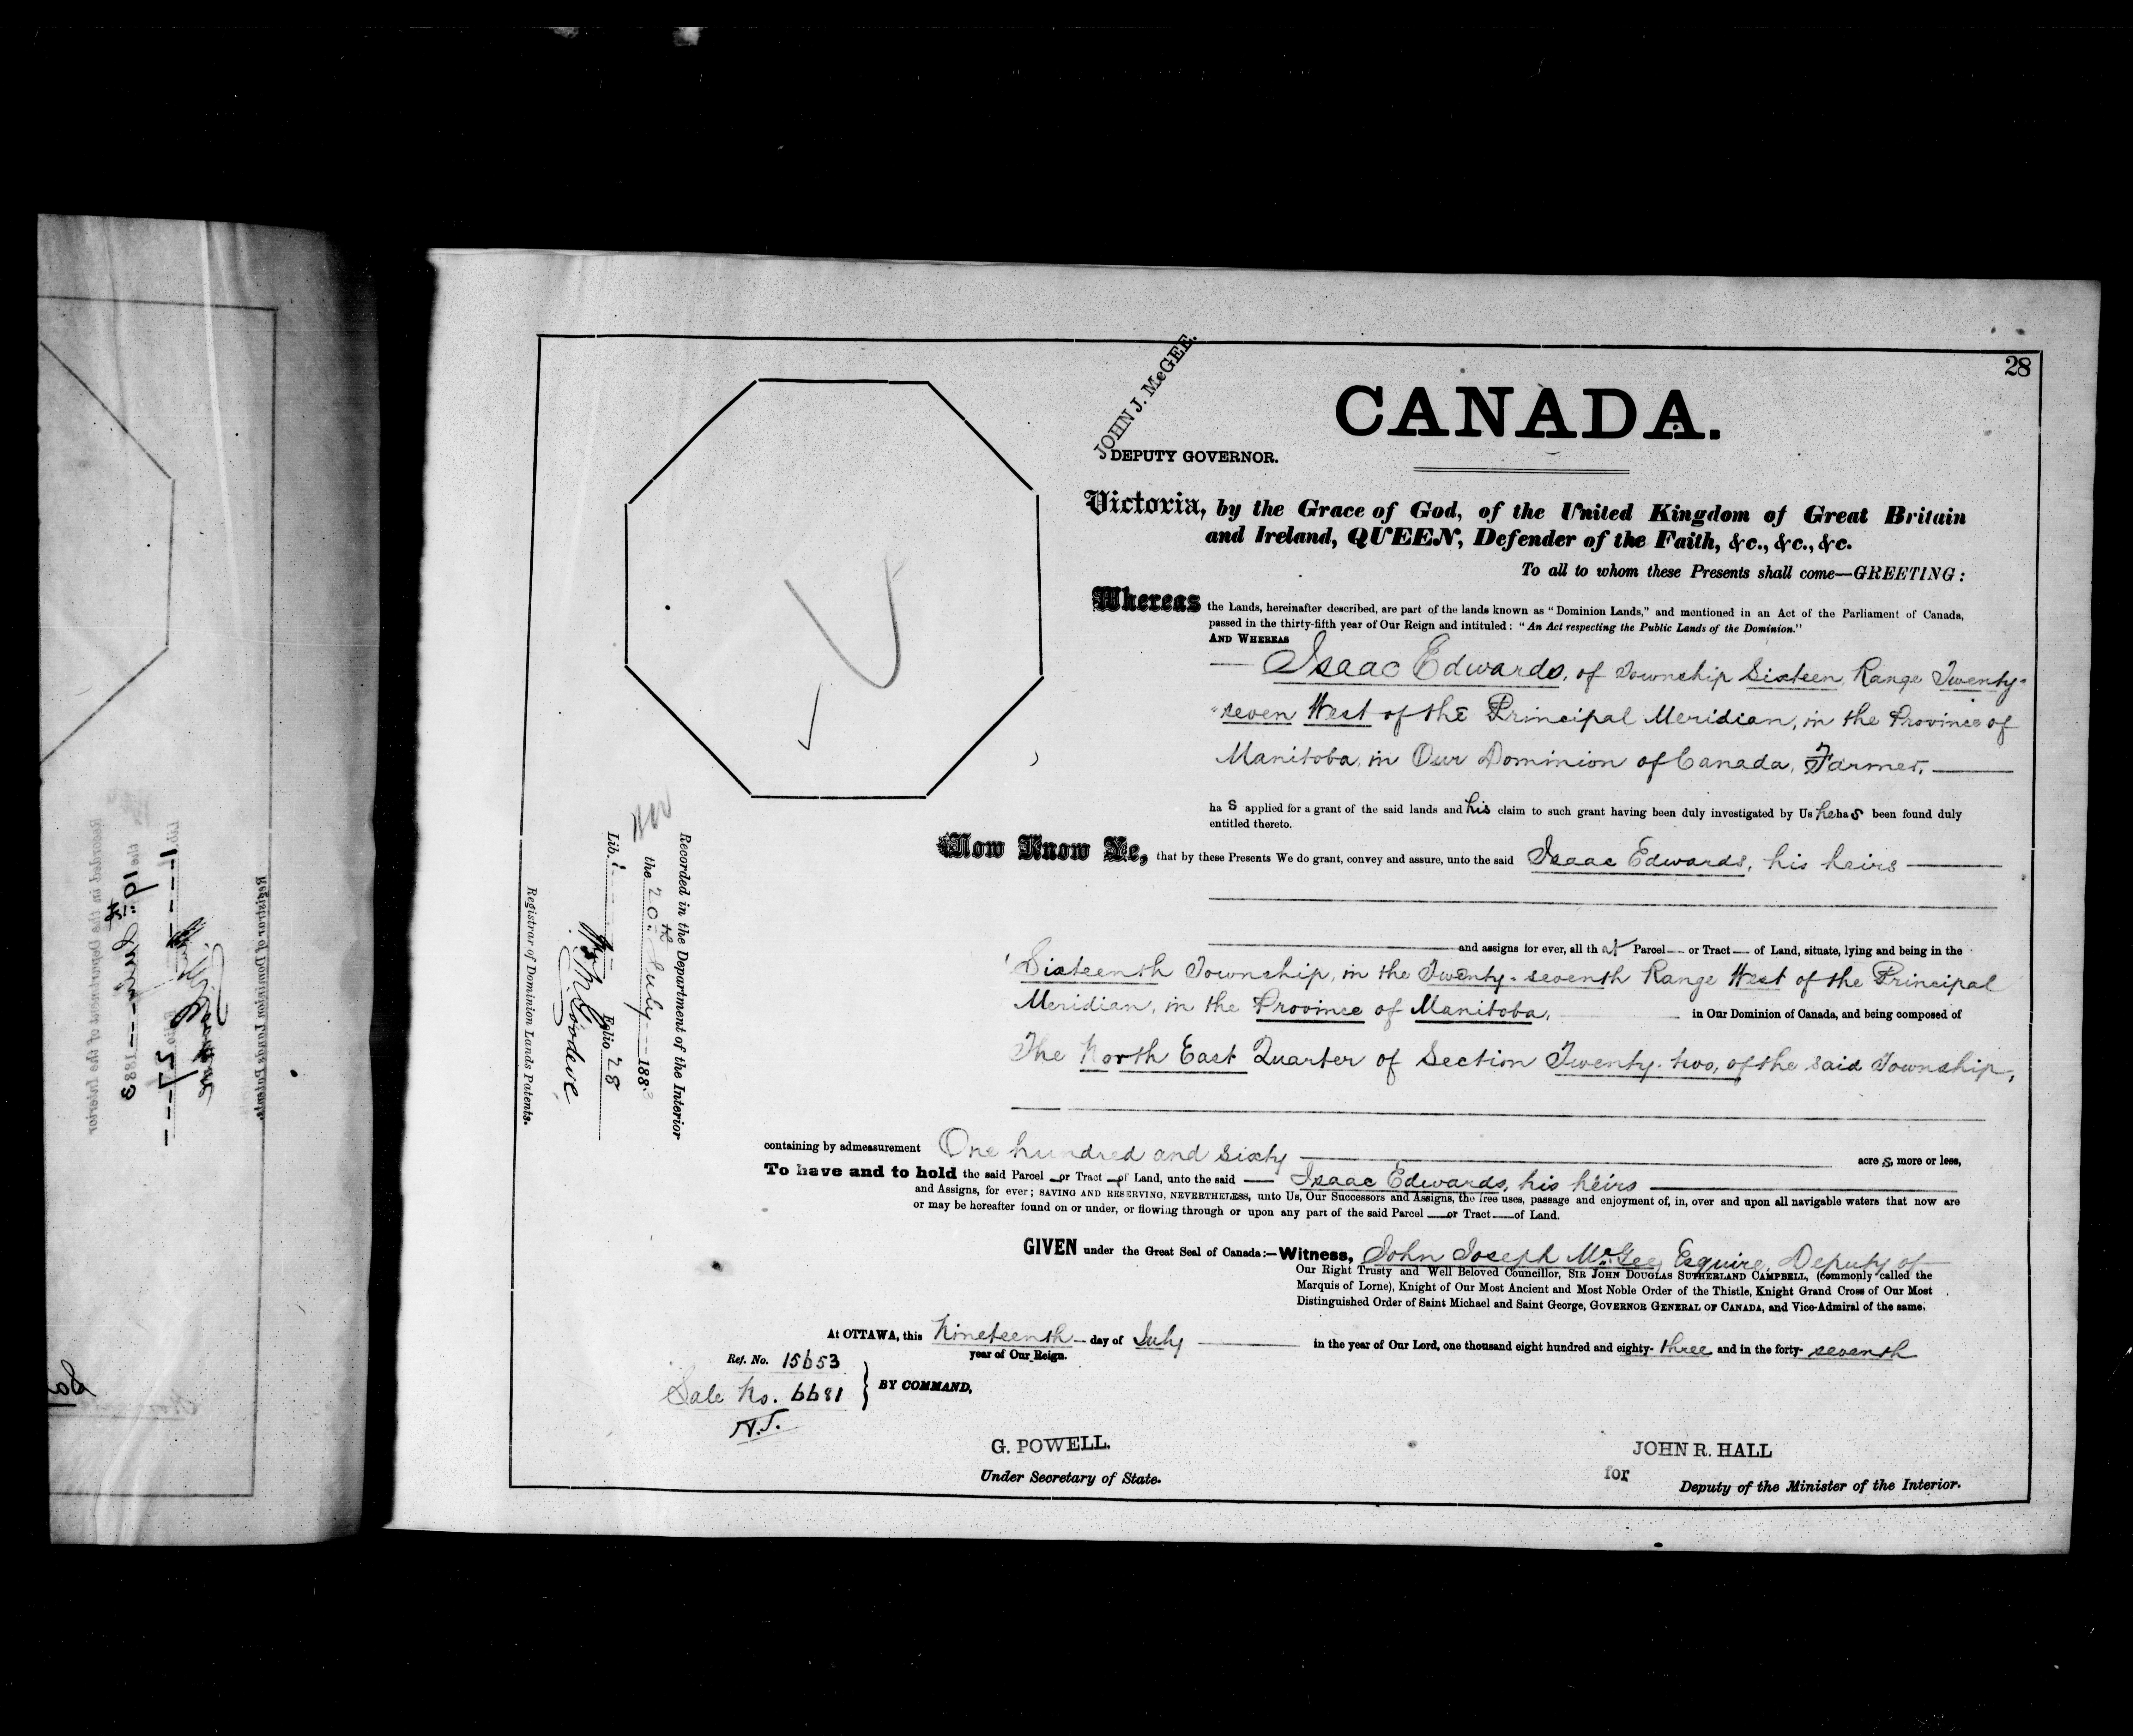 28
JOHN J. McGEE.
DEPUTY GOVERNOR.
CANADA.
Victoria, by the Grace of God, of the United Kingdom of Great Britain
and Ireland, QUEEN, Defender of the Faith, &c., &c., &c.
To all to whom these Presents shall come—GREETING:
Whereas the Lands, hereinafter described, are part of the lands known as "Dominion Lands," and mentioned in an Act of the Parliament of Canada,
passed in the thirty-fifth year of Our Reign and intituled: "An Act respecting the Public Lands of the Dominion."
AND WHEREAS
Isaac Edwards, of Township Sixteen, Range Twenty-
seven West of the Principal Meridian, in the Province of
Manitoba, in Our Dominion of Canada, Farmer,
has applied for a grant of the said lands and his claim to such grant having been duly investigated by Us he has been found duly
entitled thereto.
Now Know Ye, that by these Presents We do grant, convey and assure, unto the said Isaac Edwards, his heirs
and assigns for ever, all that Parcel or Tract of Land, situate, lying and being in the
Sixteenth Township, in the Twenty-seventh Range West of the Principal
Meridian, in the Province of Manitoba, in Our Dominion of Canada, and being composed of
The North East Quarter of Section Twenty-two, of the said Township,
containing by admeasurement One hundred and sixty acres, more or less,
To have and to hold the said Parcel or Tract of Land, unto the said Isaac Edwards, his heirs
and Assigns, for ever; SAVING AND RESERVING, NEVERTHELESS, unto Us, Our Successors and Assigns, the free uses, passage and enjoyment of, in, over and upon all navigable waters that now are
or may be hereafter found on or under, or flowing through or upon any part of the said Parcel or Tract of Land.
GIVEN under the Great Seal of Canada:—Witness, John Joseph McGee, Esquire, Deputy of
Our Right Trusty and Well Beloved Councillor, SIR JOHN DOUGLAS SUTHERLAND CAMPBELL, (commonly called the
Marquis of Lorne), Knight of Our Most Ancient and Most Noble Order of the Thistle, Knight Grand Cross of Our Most
Distinguished Order of Saint Michael and Saint George, GOVERNOR GENERAL OF CANADA, and Vice-Admiral of the same.
At OTTAWA, this Nineteenth day of July in the year of Our Lord, one thousand eight hundred and eighty-three and in the forty-seventh
year of Our Reign.
Ref. No. 15653
Sale No. 6681
N.T.
BY COMMAND,
G. POWELL.
Under Secretary of State.
JOHN R. HALL
for
Deputy of the Minister of the Interior.
Recorded in the Department of the Interior
the 20th July 1883
Lib. 1 Folio 28
Wm M Goodeve
Registrar of Dominion Lands Patents.